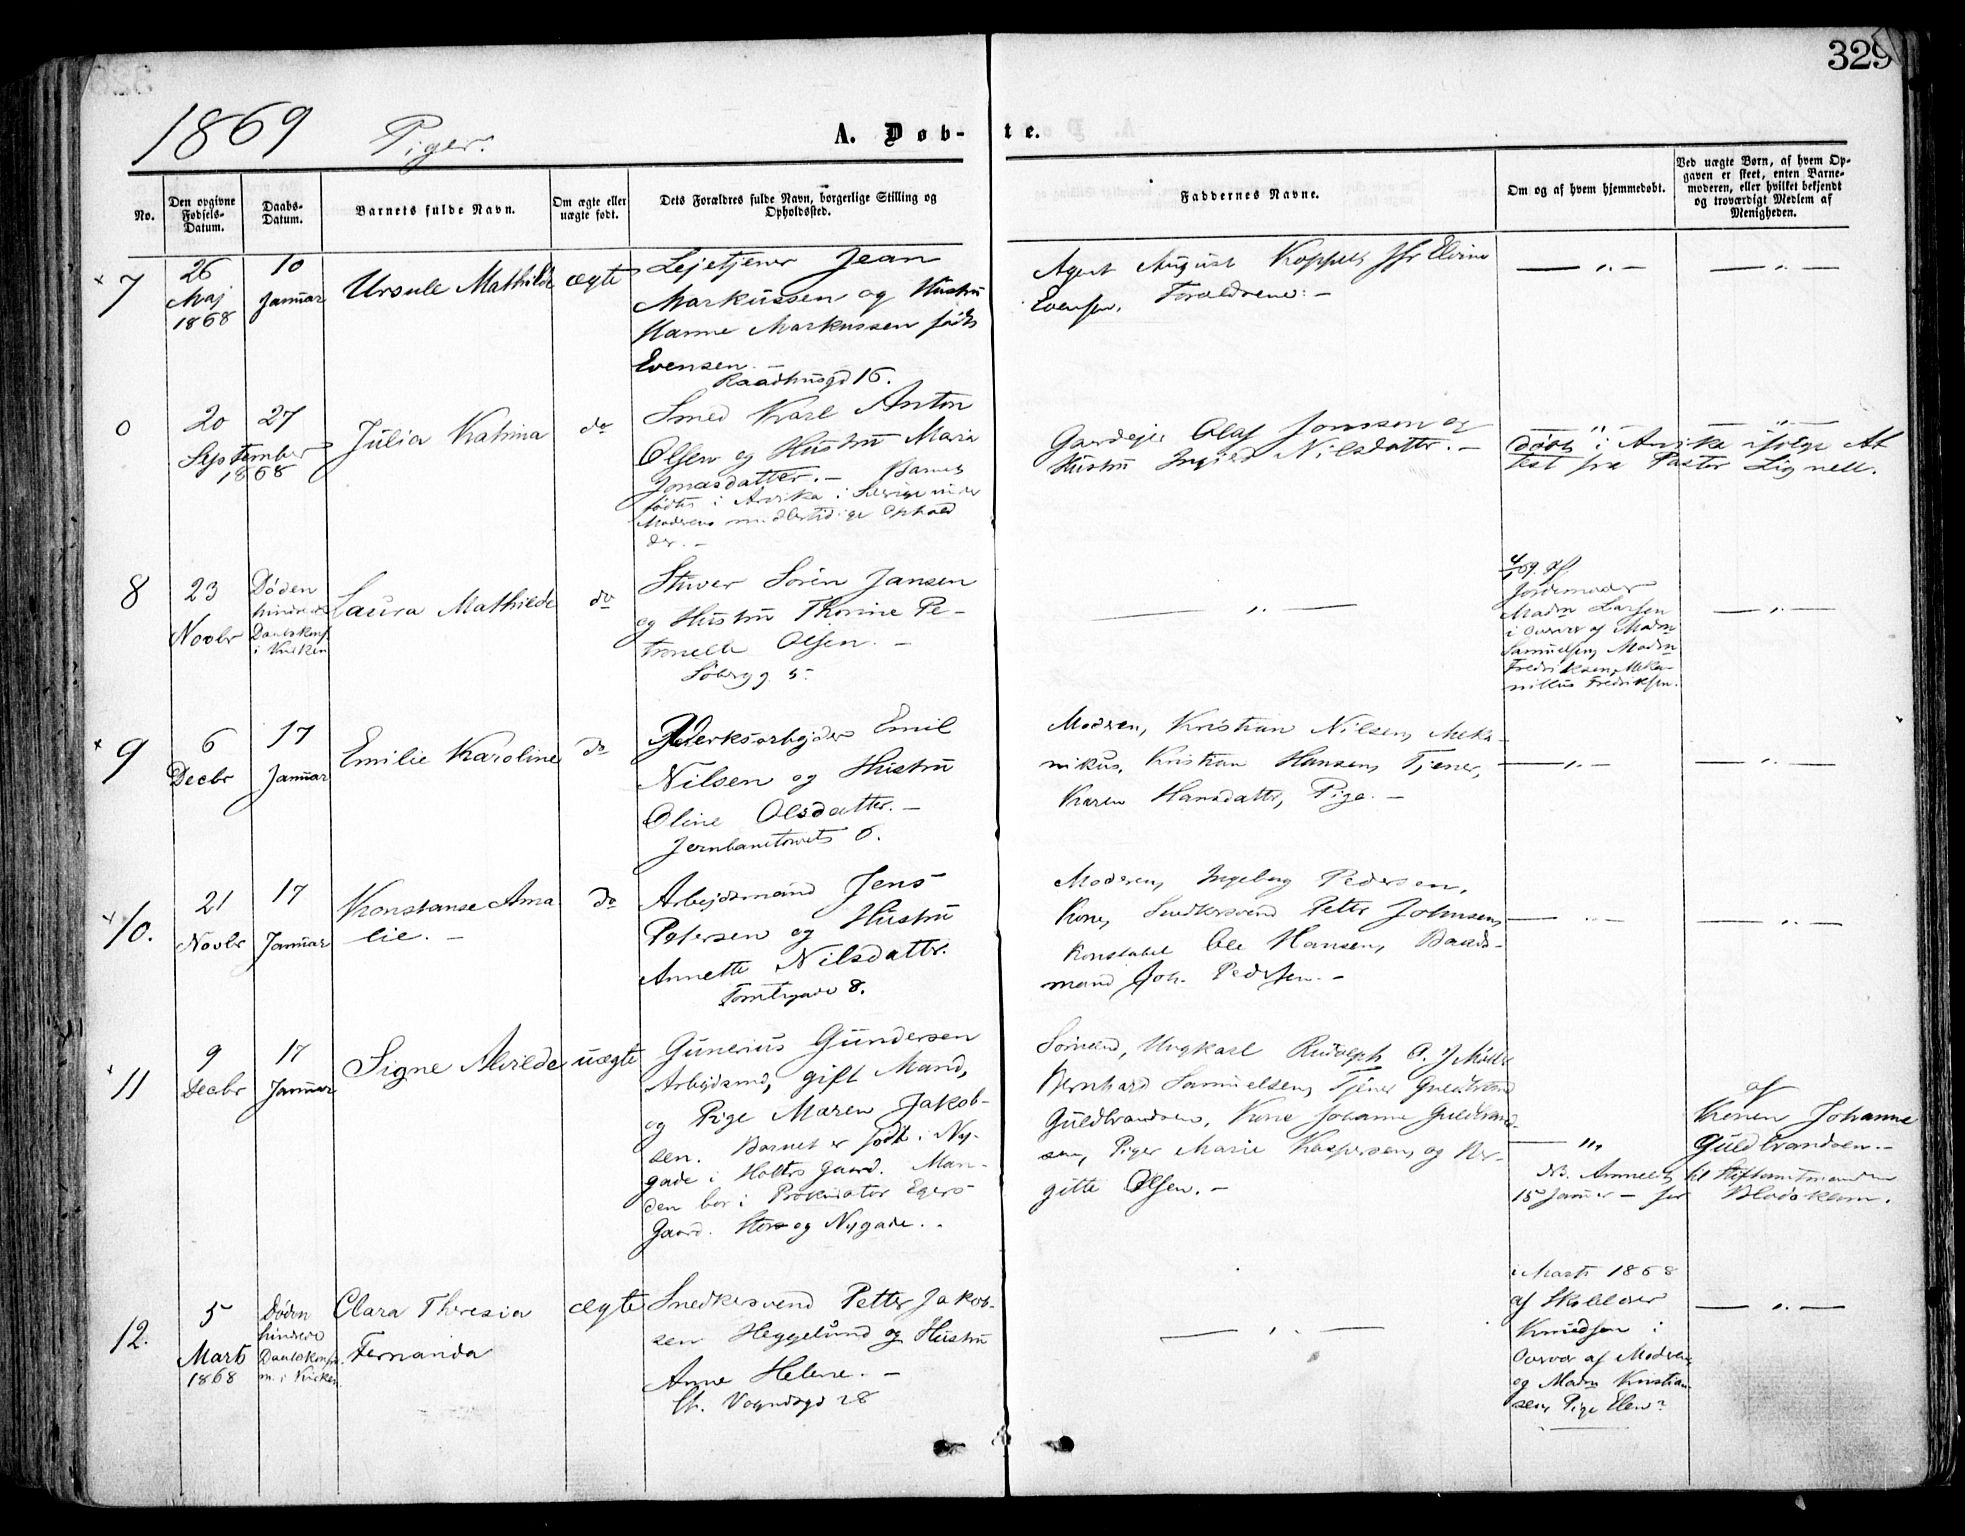 329
1869 Piger.
A. Døb-te.
No.
Den opgivne Fødsels-Datum.
Daabs-Datum.
Barnets fulde Navn.
Om ægte eller uægte født.
Dets Forældres fulde Navn, borgerlige Stilling og Opholdssted.
Faddernes Navne.
Om og af hvem hjemmedøbt.
Ved uægte Børn, af hvem Opgaven er skeet, enten Barnemoderen, eller hvilket bekjendt og troværdigt Medlem af Menigheden.
7
26 Maj 1868
10 Januar
Ursule Mathilde
ægte
Lejetjener Jean
Markussen og Hustru
Hanne Markussen født
Evensen. –
Raadhusgd 16.
Agent August Koppel, Jfr Elvine
Evensen, Forældrene. –
0
20 September 1868
27
Julia Katrina
do
Smed Karl Anton
Olsen og Hustru Maria
Jonasdatter. – Barnet
født i Arvika i Sverige under
Moderens midlertidige Ophold
der. –
Gardejer Olaf Jonssen og
Hustru Ingrid Nilsdatter. –
døbt i Arvika ifølge At
test fra Pastor Lignell.
8
23 Novbr
Døden
hindrede
Daabskonf.
i Kirken
Laura Mathilde
do
Stuver Sørin Jansen
og Hustru Thorine Pe-
tronelle Olsen. –
Søbryg. 5.
4/1 69. af
Jordemoder
Madm Larsen
i Overvær af Madm
Samuelsen, Madm
Fredriksen, Meka-
nikus Fredriksen.
9
6 Decbr
17 Januar
Emilie Karoline
do
Værksarbejder Emil
Nilsen og Hustru
Oline Olsdatter. –
Jernbanetorvets 6.
Modren, Kristian Nilsen, Meka-
nikus, Kristian Hansen, Tjener,
Karen Hansdatter, Pige. –
10.
21 Novbr
17 Januar
Konstanse Ama
lie. –
do
Arbejdsmand Jens
Petersen og Hustru
Annette Nilsdattr.
Tomtegade 8.
Moderen, Ingeborg Pedersen,
Kone, Snedkersvend Peter Johnsen,
Konstabel Ole Hansen, Baads-
mand Joh. Pedersen. –
11
9 Decbr
17 Januar
Signe Alvilde
uægte
Gunerius Gundersen
Arbejdsmd, gift Mand,
og Pige Maren Jakob-
sen. Barnet er født i Ny-
gade i Holtes Gaard. Man-
den bor i Prokurator Egers
Gaard. Stor og Nygade.
Sømænd, Ungkarl Rudolph
Bernhard Samuelsen, Tjener Guldbrand
Guldbrandsen, Kone Johanne Guldbrand-
sen, Piger Marie Kaspersen, og Ber-
gitte Olsen. –
af
Konen Johanne
Guldbrandsen. –
NB. Anmeldt til Stiftamtmanden
15 Januar – for Blodskam.
12.
5 Marts 1868
Døden
hindrede
Daabskonfir
m. i Kirken
Clara Theresia
Fernanda
ægte
Snedkersvend Petter Jakob-
sen Heggelund og Hustru
Anne Helene. –
St. Vognmdsgd 28
i Marts 1868
af Skolelærer
Knudsen i
Overvær af Modren,
og Madm Kristian-
sen, Pige Elen?